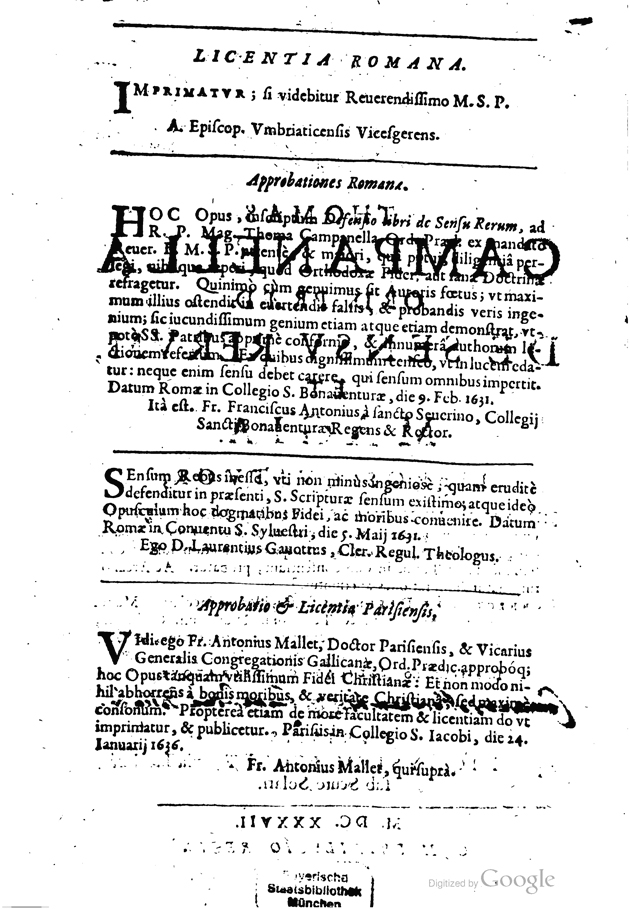 LICENTIA ROMANA.
IMPRIMATVR; si videbitur Reuerendissimo M. S. P.
A. Episcop. Vmbriaticensis Vicesgerens.
Approbationes Romanæ.
HOC Opus, inscriptum Defensio libri de Sensu Rerum, ad
R. P. Mag. Thoma Campanella Ord. Præd. ex mandato
Reuer. P. M. S. P. & maiori, qua potui diligentia per-
legi, nihilque reperi, quod Orthodoxæ Fidei, aut sanæ Doctrinæ
refragetur. Quinimo cùm genuinus sit Auctoris fœtus; vt maxi-
mum illius ostendit in euertendis falsis, & probandis veris inge-
nium; sic iucundissimum genium etiam atque etiam demonstrat, vt-
potè SS. Patribus apprimè conforme, & innumera authorum le-
ctionem refertum. Ex quibus dignissimum censeo, vt in lucem eda-
tur: neque enim sensu debet carere, qui sensum omnibus impertit.
Datum Romæ in Collegio S. Bonauenturæ, die 9. Feb. 1631.
Ità est. Fr. Franciscus Antonius à sancto Seuerino, Collegij
Sancti Bonauenturæ Regens & Rector.
SEnsum Rebus inesse, vti non minùs ingeniosè, quam eruditè
defenditur in præsenti, S. Scripturæ sensum existimo; atque ideò
Opusculum hoc dogmatibus Fidei, ac moribus conuenire. Datum
Romæ in Conuentu S. Syluestri, die 5. Maij 1631.
Ego D. Laurentius Gauottus, Cler. Regul. Theologus.
Approbatio & Licentia Parisiensis.
VIdi ego Fr. Antonius Mallet, Doctor Parisiensis, & Vicarius
Generalis Congregationis Gallicanæ, Ord. Prædic. approbóq;
hoc Opus tanquam vtilissimum Fidei Christianæ: Et non modo ni-
hil abhorrens à bonis moribus, & veritate Christiana, sed maximè
consonum. Proptereà etiam de more facultatem & licentiam do vt
imprimatur, & publicetur. Parisiis in Collegio S. Iacobi, die 24.
Ianuarij 1636.
Fr. Antonius Mallet, qui suprà.
M. DC. XXXVII.
Bayerische
Staatsbibliothek
München
Digitized by Google